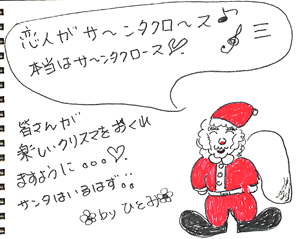 恋人がサ〜ンタクロ〜ス♪
本当はサ〜ンタクロース♡
皆さんが
楽しいクリスマスをおくれ
ますように。。。♡
サンタはいるはず!!
by ひとみ